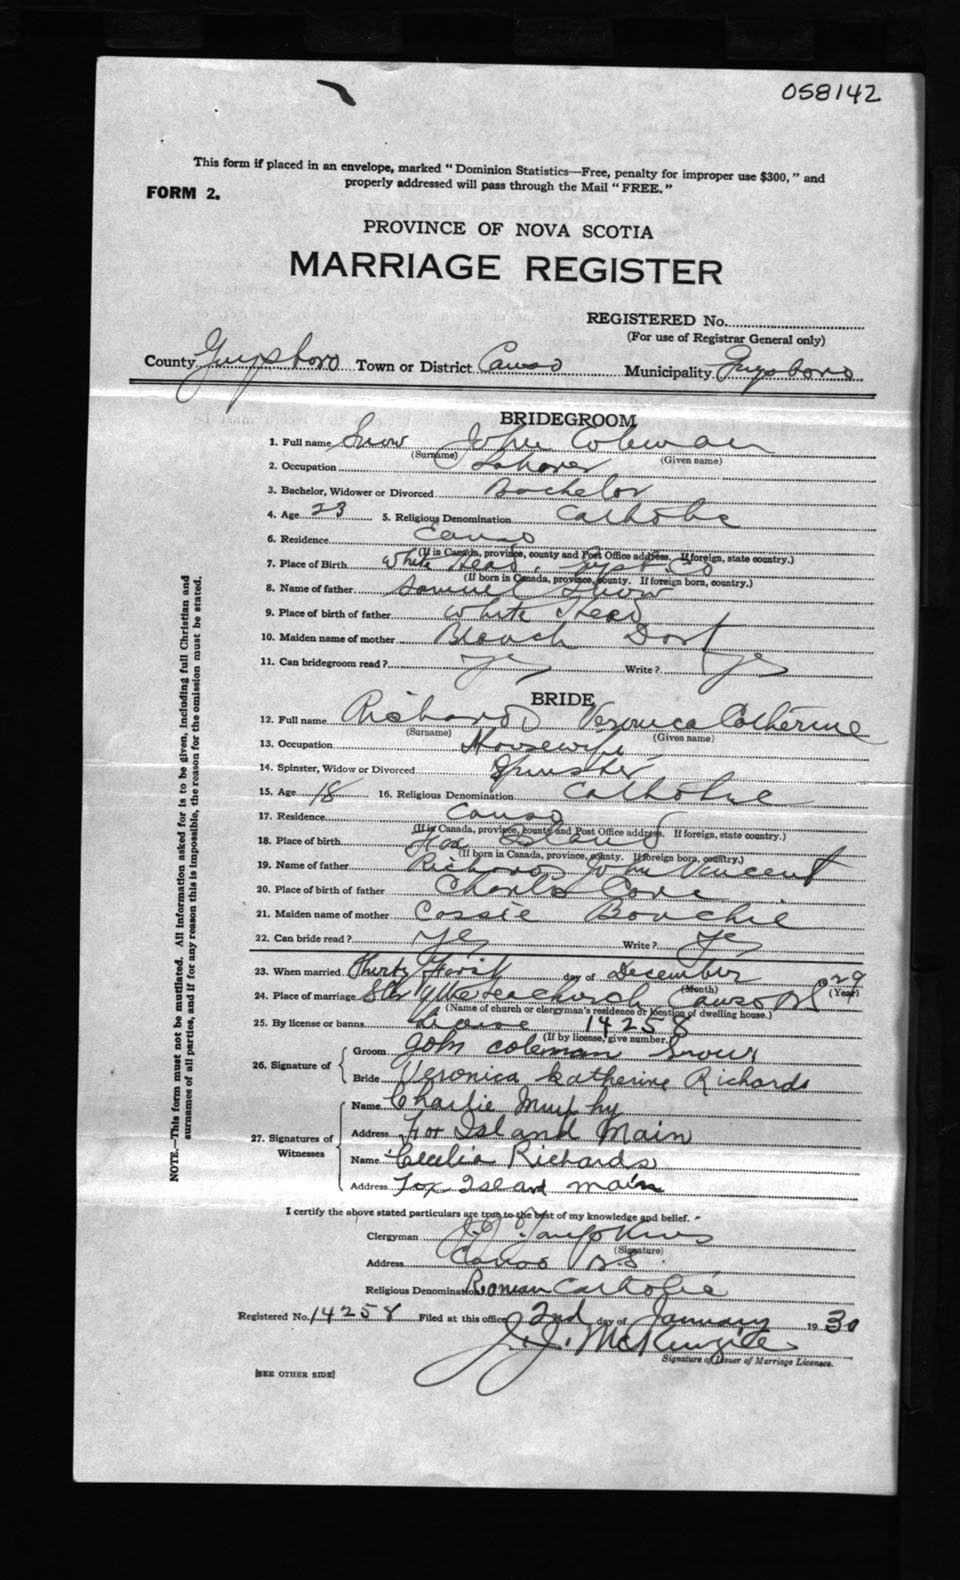 058142
This form if placed in an envelope, marked "Dominion Statistics—Free, penalty for improper use $300," and
properly addressed will pass through the Mail "FREE."
FORM 2.
PROVINCE OF NOVA SCOTIA
MARRIAGE REGISTER
REGISTERED No.
(For use of Registrar General only)
County Guysboro Town or District Canso Municipality Guysboro
BRIDEGROOM
1. Full name Snow John Coleman
(Surname) (Given name)
2. Occupation Laborer
3. Bachelor, Widower or Divorced Bachelor
4. Age 23 5. Religious Denomination Catholic
6. Residence Canso
(If in Canada, province, county and Post Office address. If foreign, state country.)
7. Place of Birth White Head, Guys. Co
(If born in Canada, province, county. If foreign born, country.)
8. Name of father Samuel Snow
9. Place of birth of father White Head
10. Maiden name of mother Blanch Dort
11. Can bridegroom read? Yes Write? Yes
BRIDE
12. Full name Richard Veronica Catherine
(Surname) (Given name)
13. Occupation Housewife
14. Spinster, Widow or Divorced Spinster
15. Age 18 16. Religious Denomination Catholic
17. Residence Canso
(If in Canada, province, county and Post Office address. If foreign, state country.)
18. Place of birth Fox Island
(If born in Canada, province, county. If foreign born, country.)
19. Name of father Richards John Vincent
20. Place of birth of father Charlos Cove
21. Maiden name of mother Cassie Bouchie
22. Can bride read? Yes Write? Yes
23. When married Thirty First day of December 1929
(Month) (Year)
24. Place of marriage church Canso NS
(Name of church or clergyman's residence or location of dwelling house.)
25. By license or banns License 14258
(If by license, give number.)
26. Signature of Groom John Coleman Snow
Bride Veronica Katherine Richards
27. Signatures of Witnesses
Name Charlie Murphy
Address Fox Island Main
Name Cecelia Richards
Address Fox Island main
I certify the above stated particulars are true to the best of my knowledge and belief.
Clergyman J. J. Tompkins
(Signature)
Address Canso N.S.
Religious Denomination Roman Catholic
Registered No. 14258 Filed at this office 2nd day of January 1930
J. J. McKenzie
Signature of Issuer of Marriage Licenses.
[SEE OTHER SIDE]
NOTE.—This form must not be mutilated. All information asked for is to be given, including full Christian and
surnames of all parties, and if for any reason this is impossible, the reason for the omission must be stated.